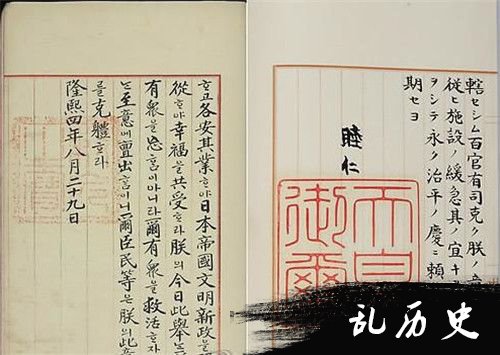 轄セシム百官有司克ク朕
從ヒ施設ノ緩急其ノ宜キ
ヲシテ永ク治平ノ慶ニ賴
期セヨ
睦仁
天皇
御璽
ᄒᆞ고各安其業ᄒᆞ야日本帝國文明新政을
從ᄒᆞ야幸福을共受ᄒᆞ라朕의今日此擧ᄂᆞᆫ
有衆을忘홈이아니라爾有衆을救活ᄒᆞ자
ᄂᆞᆫ至意에亶出홈이니爾臣民等은朕의此意
를克體ᄒᆞ라
隆熙四年八月二十九日
乱历史